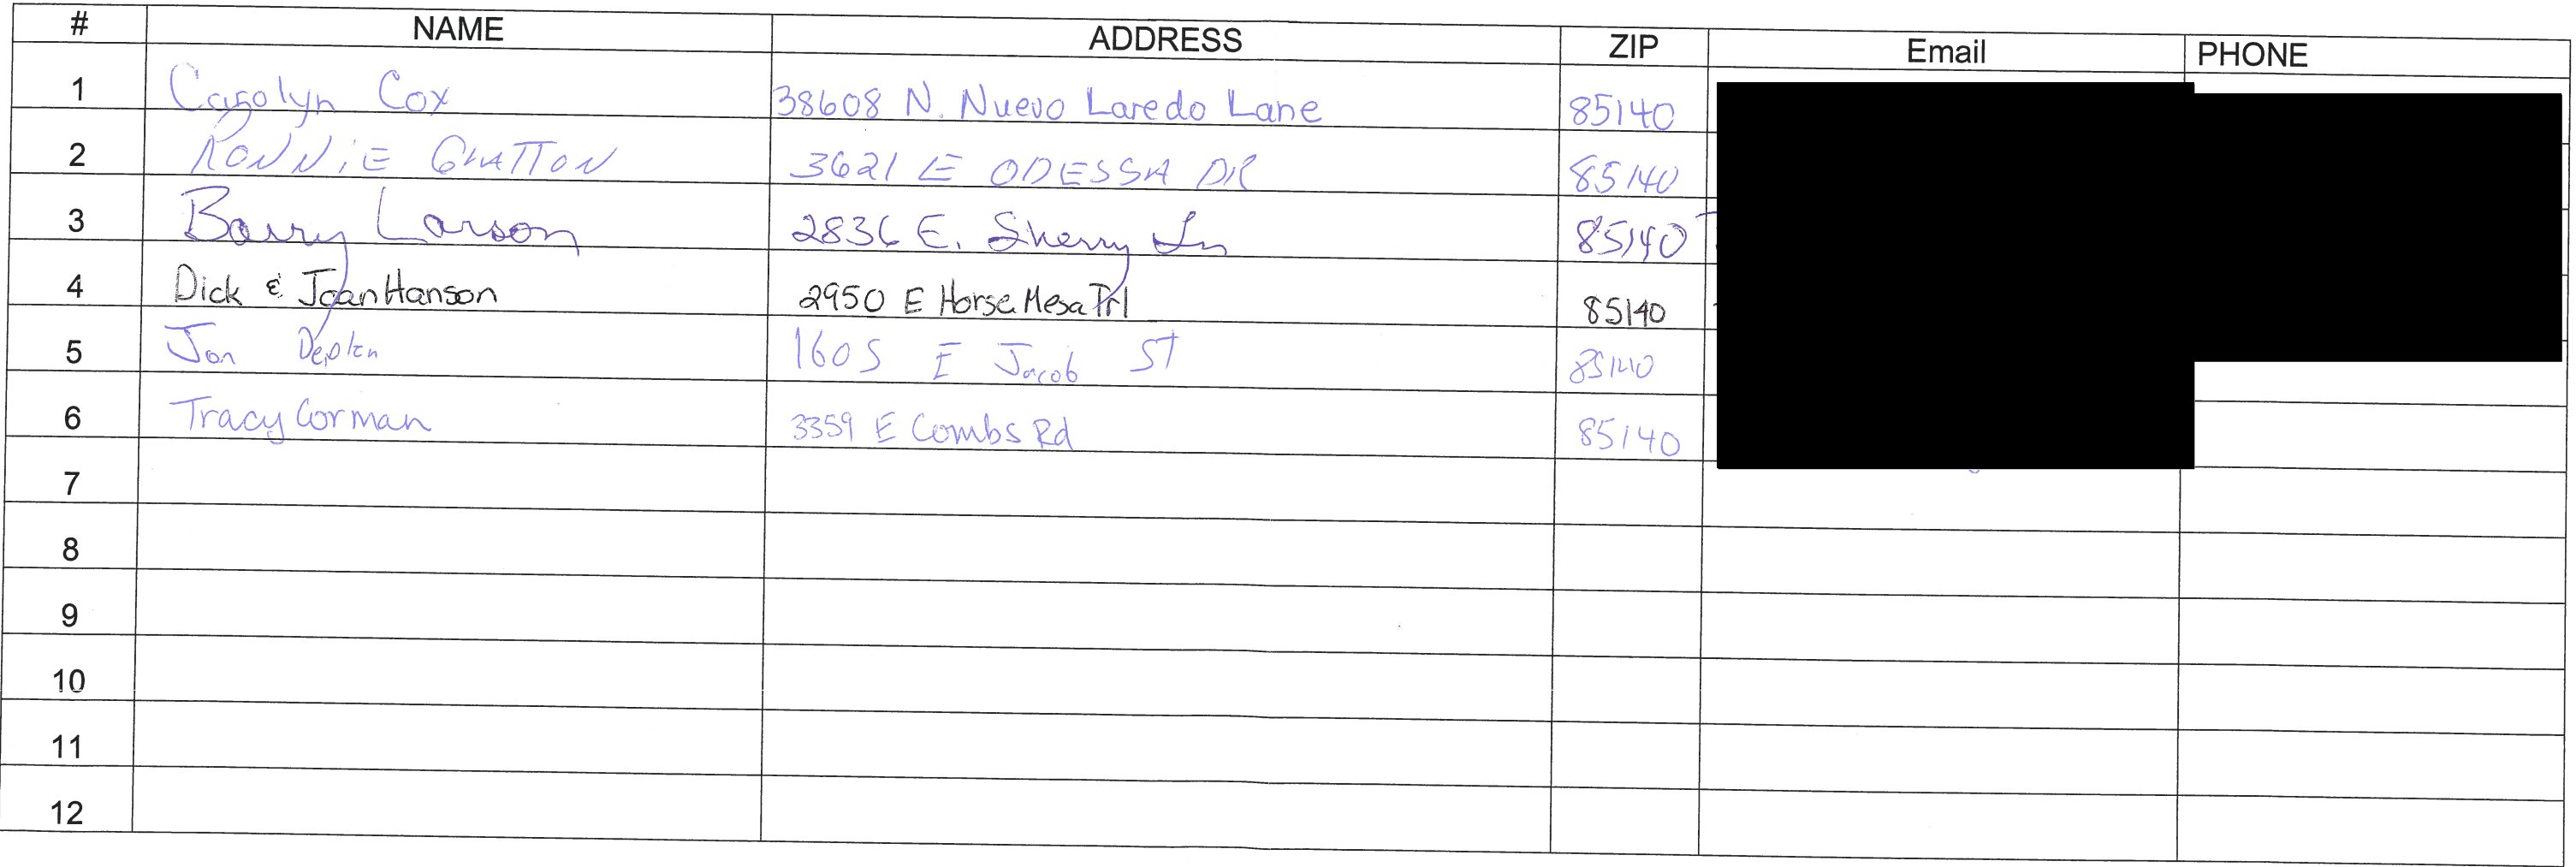 # NAME ADDRESS ZIP Email PHONE
1 Carolyn Cox 38608 N. Nuevo Laredo Lane 85140
2 RONNIE 3621 E ODESSA DR 85140
3 Barry Larson 2836 E. Sherry Ln 85140
4 Dick & Joan Hanson 2950 E Horse Mesa Trl 85140
5 Jon 1605 E Jacob ST 85140
6 Tracy Corman 3359 E Combs Rd 85140
7
8
9
10
11
12